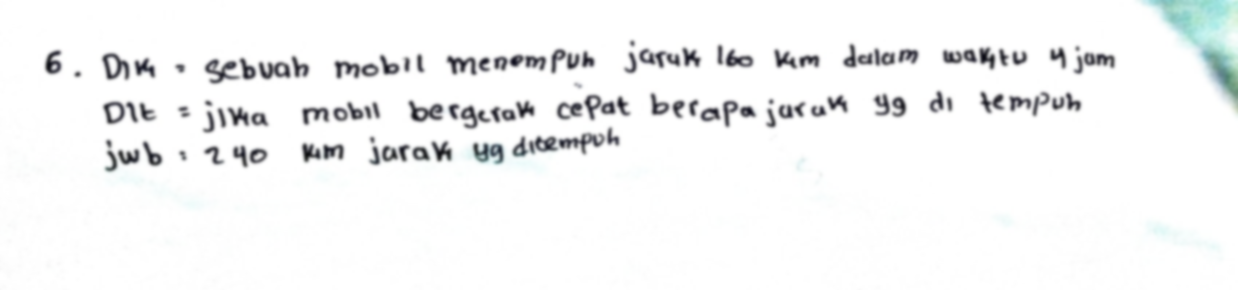 6. Dik = sebuah mobil menempuh jarak 160 km dalam waktu 4 jam
Dit = jika mobil bergerak cepat berapa jarak yg di tempuh
jwb : 240 km jarak yg ditempuh